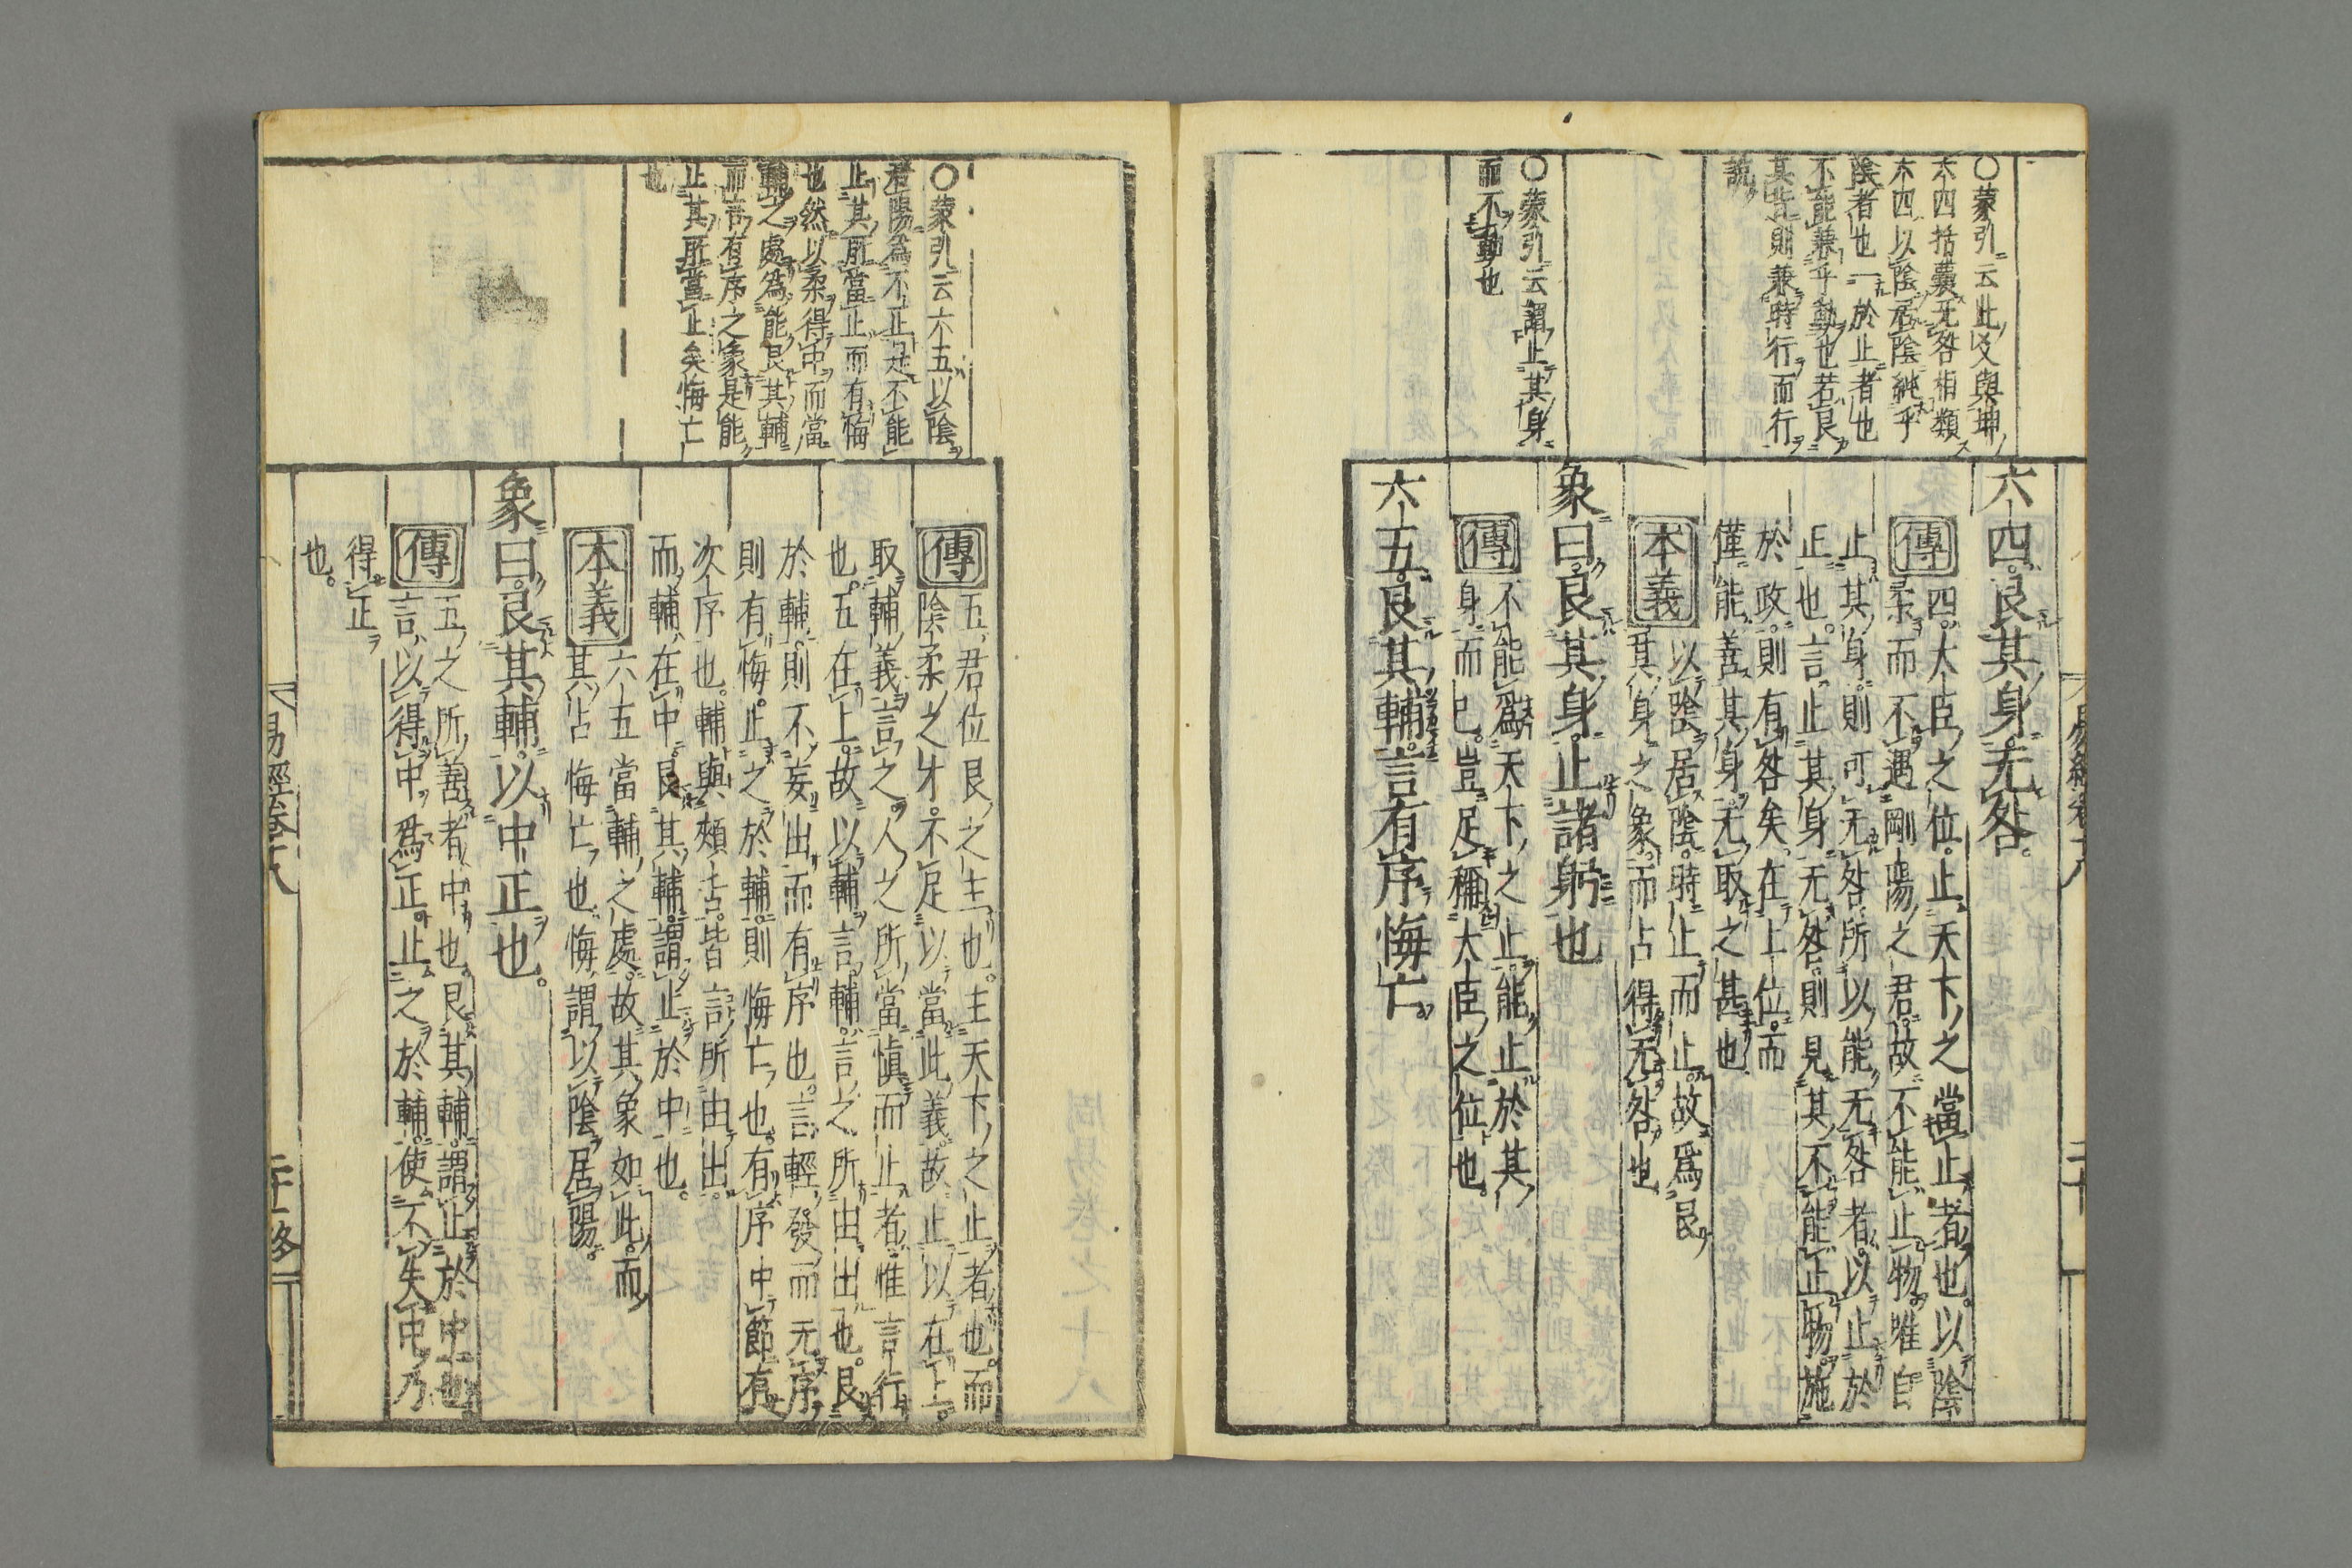 〇蒙引云此爻與坤
六四括囊无咎相類
六四以陰居陰純乎
陰者也一於止者也
不能兼乎動也若艮
其止則兼時行而行
說
〇蒙引云謂止其身
而不動也
六四艮其身无咎
傳四大臣之位止天下之當止者也以陰
柔而不遇剛陽之君故不能止物唯自
止其身則可无咎所以能无咎者以止於
正也言止其身无咎則見其不能止物施
於政則有咎矣在上位而
僅能善其身无取之甚也
本義以陰居陰時止而止故爲艮
其身之象而占得无咎也
象曰艮其身止諸躬也
傳不能爲天下之止能止於其
身而已豈足稱大臣之位也
六五艮其輔言有序悔亡
〇蒙引云六五以陰
君陽爲不正是不能
止其所當止而有悔
也然以柔得中而當
輔之處爲能艮其輔
而言有序之象是能
止其所當止矣悔亡
也
傳五君位艮之主也主天下之止者也而
陰柔之才不足以當此義故止以在上
取輔義言之人之所當愼而止者惟言行
也五在上故以輔言輔言之所由出也艮
於輔則不妄出而有序也言輕發而无序
則有悔止之於輔則悔亡也有序中節有
次序也輔與頰舌皆言所由出
而輔在中艮其輔謂止於中也
本義六五當輔之處故其象如此而
其占悔亡也悔謂以陰居陽
象曰艮其輔以中正也
傳五之所善者中也艮其輔謂止於中也
言以得中爲正止之於輔使不失中乃
得正
也
易經卷十八